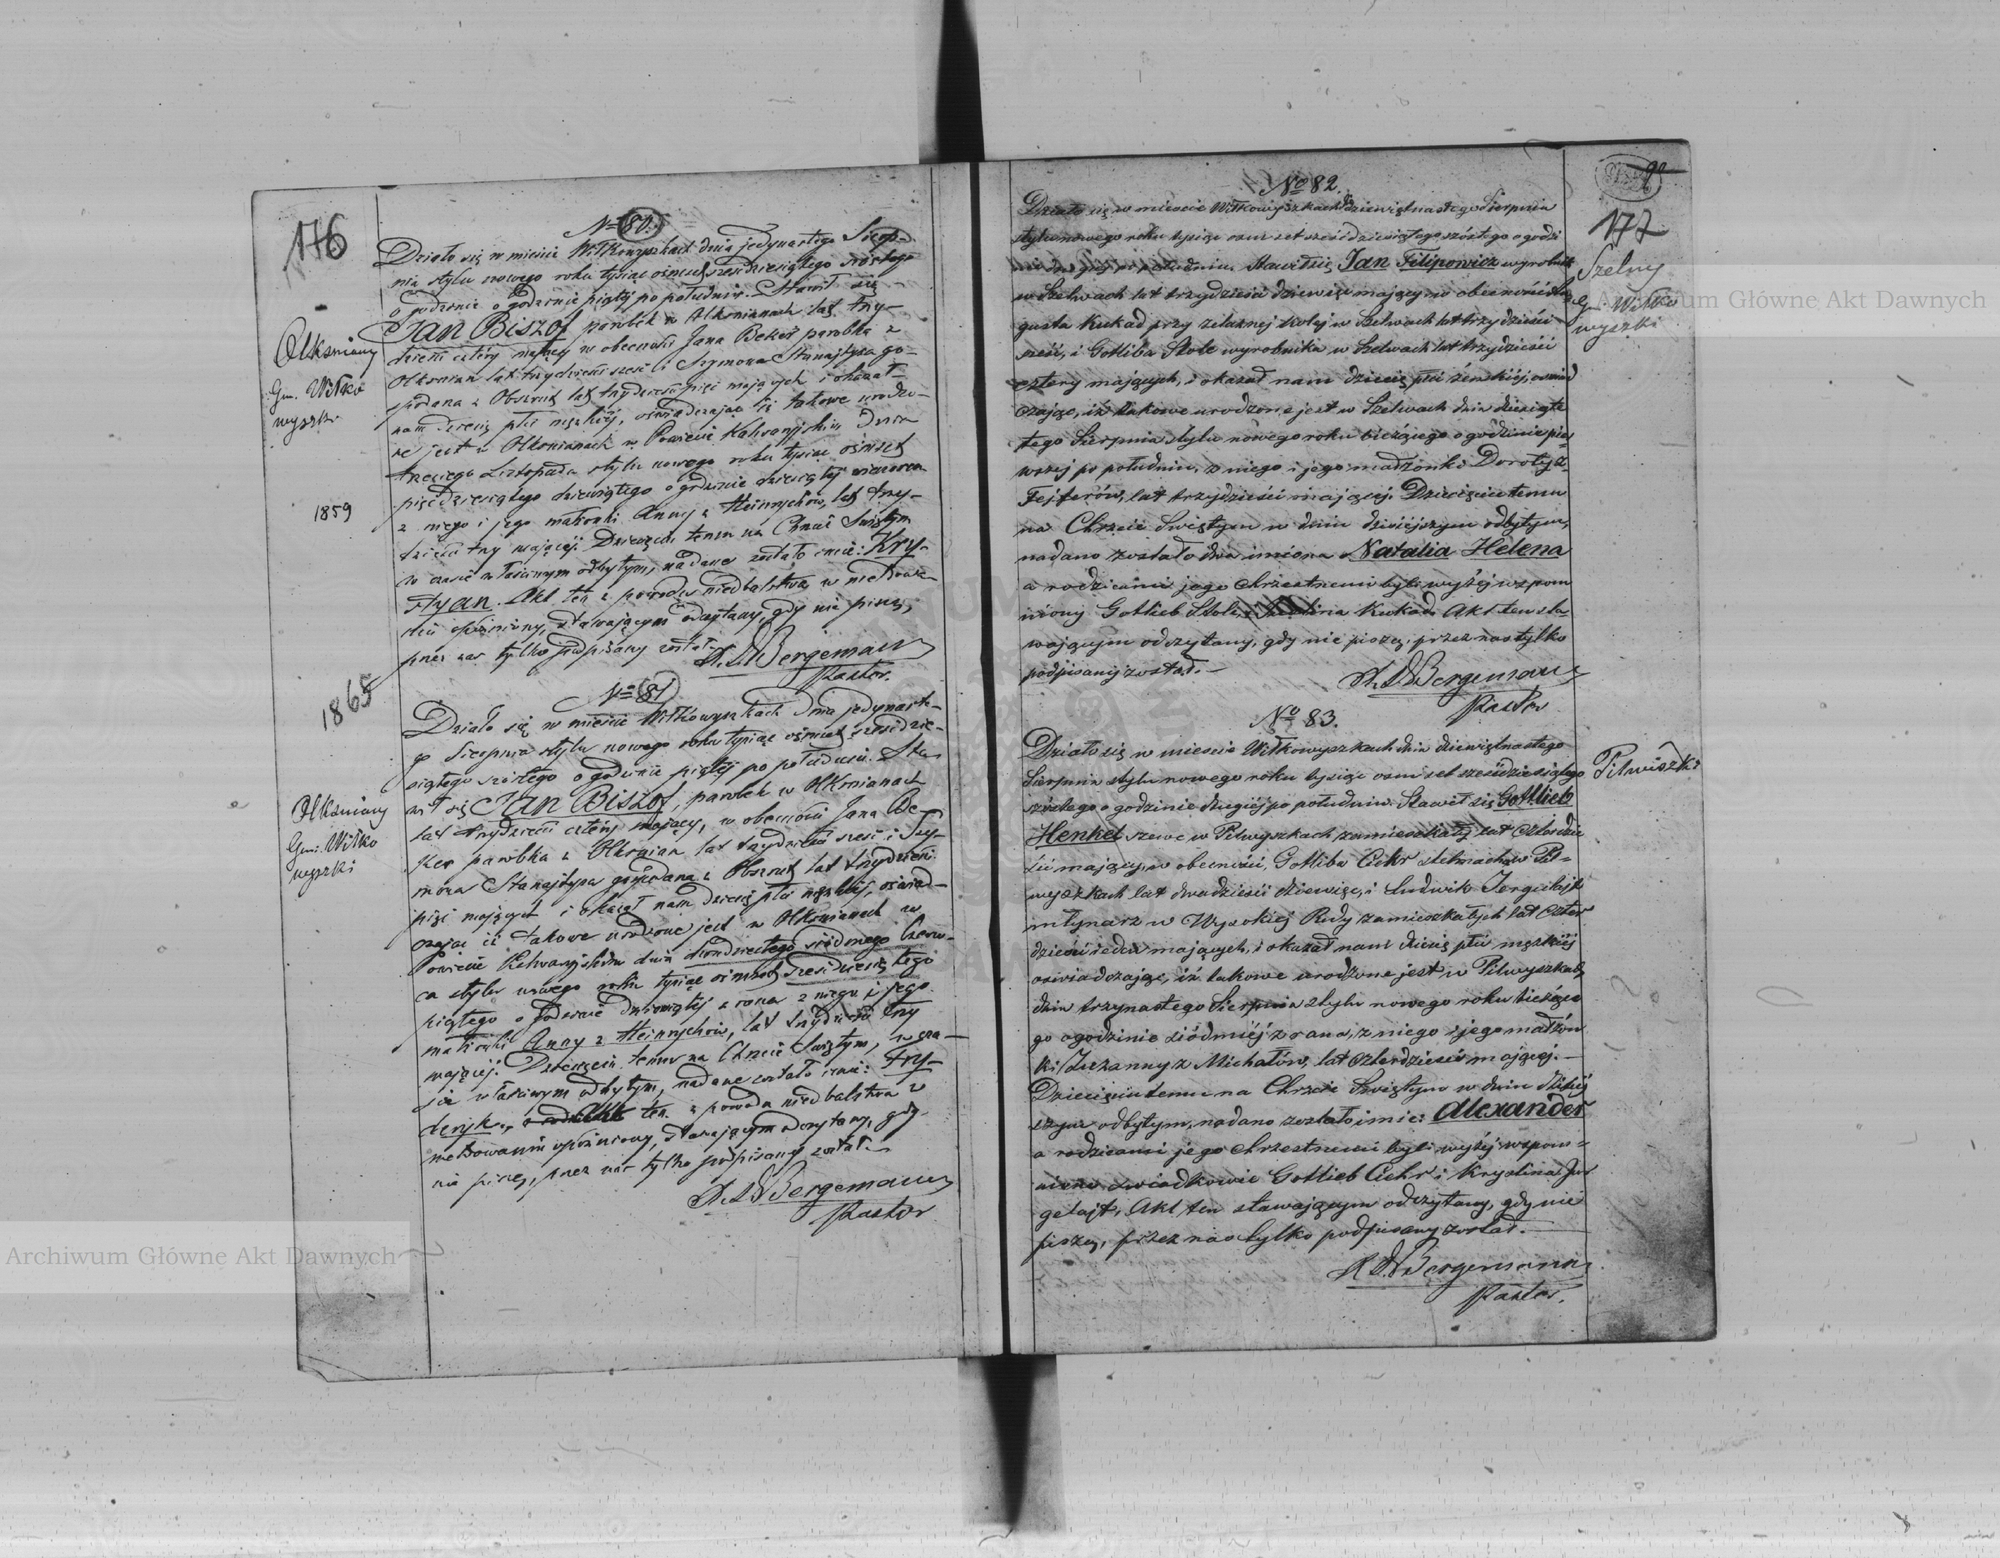 176
No 80.
Działo się w mieście Wiłkowyszkach dnia jedynastego Sierp-
nia stylu nowego roku tysiąc ośmset sześćdziesiątego szóstego
o godzinie o godzinie piątej po południu. Stawił się
Jan Biszof parobek w Olkonianach lat trzy-
dzieści cztéry mający w obecności Jana Beker parobka z
Olkonian lat trzydzieści sześć i Szymona Stanajtysa go-
spodarza z Obszrut lat trzydzieści pięć mających i okazał
nam dziecię płci męzkiéj, oświadczając iż takowe urodzo-
ne jest w Olkonianach w Powiecie Kalwaryjskim dnia
trzeciego Listopada stylu nowego roku tysiąc ośmset
pięćdziesiątego dziewiątego o godzinie dziesiątéj wieczorem
z niego i jego małżonki Anny z Heinrychów, lat trzy-
dzieści trzy mającéj. Dziecięciu temu na Chrzcie Świętym
w czasie właściwym odbytym, nadane zostało imie: Kry-
styan. Akt ten z powodu niedbalstwa w meldowa-
niu opóźniony, stawającym odczytany, gdy nie piszą,
przez nas tylko podpisany został.
Bergemann
Pastor.
Olksniany
Gm. Wiłko
wyszki
1859
1865
No 81
Działo się w mieście Wiłkowyszkach dnia jedynaste-
go Sierpnia stylu nowego roku tysiąc ośmset sześćdzie-
siątego szóstego o godzinie piątéj po południu. Sta-
wił się Jan Biszof, parobek w Olkonianach
lat trzydzieści cztéry mający, w obecności Jana Be-
ker parobka z Olkonian lat trzydzieści sześć i Szy-
mona Stanajtysa gospodarza z Obszrut lat trzydzieści
pięć mających i okazał nam dziecię płci męzkiéj, oświad-
czając iż takowe urodzone jest w Olkonianach w
Powiecie Kalwaryjskim dnia dwudziestego siódmego Czerw-
ca stylu nowego roku tysiąc ośmset sześćdziesiątego
piątego o godzinie dziewiątéj z rana z niego i jego
małżonki Anny z Heinrychów, lat trzydzieści trzy
mającéj. Dziecięciu temu na Chrzcie Świętym, w cza-
sie właściwym odbytym, nadane zostało imie: Fry-
deryk. Akt ten z powodu niedbalstwa w
meldowaniu opóźniony, stawającym odczytany, gdy
nie piszą, przez nas tylko podpisany został.
Bergemann
Pastor
Olksniany
Gm: Wiłko
wyszki
No 82.
Działo się w mieście Wiłkowyszkach dziewiętnastego Sierpnia
stylu nowego roku tysiąc ośm set sześćdziesiątego szóstego o godzi
po południu. Stawił się Jan Filipowicz wyrobnik
w Szelwach lat trzydzieści dziewięć mający w obecności Au
gusta Kukad przy żelaznej koleji w Szelwach lat trzydzieści
sześć, i Gotliba Stole wyrobnika w Szelwach lat trzydzieści
cztery mających, i okazał nam dziecię płci żeńskiéj, oświad
czając, iż takowe urodzone jest w Szelwach dnia dziesiąte
tego Sierpnia stylu nowego roku bieżącego o godzinie pier
wszej po południu, z niego i jego małżonki Doroty z
Fejferów, lat trzydzieści mającéj. Dziecięciu temu
na Chrzcie Świętym w dniu dzisiejszym odbytym,
nadano zostało dwa imiona Natalia Helena
a rodzicami jego chrzestnemi byli wyżej wspom
niony Gotlieb Stole, i Kukad. Akt ten sta-
wającym odczytany, gdy nie piszą, przez nas tylko
podpisany został.
Bergemann
Pastor
177
Szelwy
G. Wiłko
wyszki
No 83.
Działo się w mieście Wiłkowyszkach dnia dziewiętnastego
Sierpnia stylu nowego roku tysiąc osm set sześćdziesiątego
szóstego o godzinie drugiéj po południu. Stawił się Gottlieb
Henkel szewc w Pilwyszkach zamieszkały lat czterdzie
ści mający, w obecności, Gotliba Ciehr stelmacha w Pil-
wyszkach lat dwadzieścia dziewięć, i Ludwik Jergielajt
młynarz w Wysokiej Rudy zamieszkałych lat czter
dzieści siedm mających, i okazał nam dziecię płci męzkiéj
oświadczając, iż takowe urodzone jest w Pilwyszkach
dnia trzynastego Sierpnia stylu nowego roku bieżące
go o godzinie siódméj z rana, z niego i jego małżon
ki Zuzanny z Michałów, lat czterdzieści mającéj.
Dziecięciu temu na Chrzcie Świętym w dniu dzisiej
szym odbytym, nadano zostało imie: Alexander
a rodzicami jego chrzestnemi byli wyżéj wspom-
nieni świadkowie Gotlieb Ciehr i Krystina Jur
gelajt, Akt ten stawającym odczytany, gdy nie
piszą, przez nas tylko podpisany został.
Bergemann
Pastor.
Pilwiszki
Archiwum Główne Akt Dawnych
Archiwum Główne Akt Dawnych